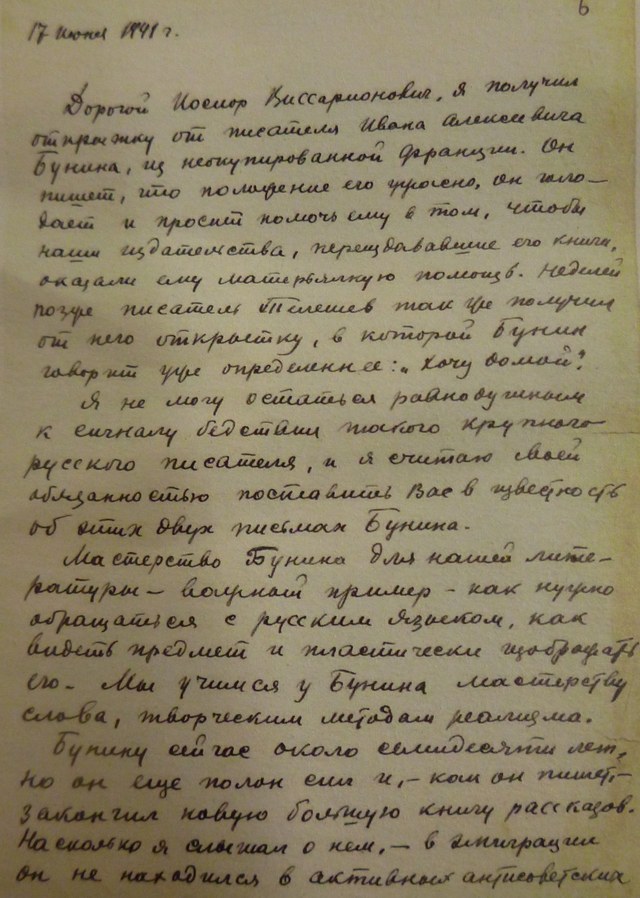 6
17 июня 1941 г.
Дорогой Иосиф Виссарионович, я получил
открытку от писателя Ивана Алексеевича
Бунина, из неоккупированной Франции. Он
пишет, что положение его ужасно, он голо-
дает и просит помочь ему в том, чтобы
наши издательства, переиздававшие его книги,
оказали ему матерьялную помощь. Неделей
позже писатель Телешев так же получил
от него открытку, в которой Бунин
говорит уже определеннее: „Хочу домой".
Я не могу остаться равнодушным
к сигналу бедствия такого крупного
русского писателя, и я считаю моей
обязанностью поставить Вас в известность
об этих двух письмах Бунина.
Мастерство Бунина для нашей лите-
ратуры – важный пример – как нужно
обращаться с русским языком, как
видеть предмет и пластически изображать
его. Мы учимся у Бунина мастерству
слова, творческим методам реализма.
Бунину сейчас около семидесяти лет,
но он еще полон сил и, – как он пишет, –
закончил новую большую книгу рассказов.
Насколько я слышал о нем, – в эмиграции
он не находился в активных антисоветских